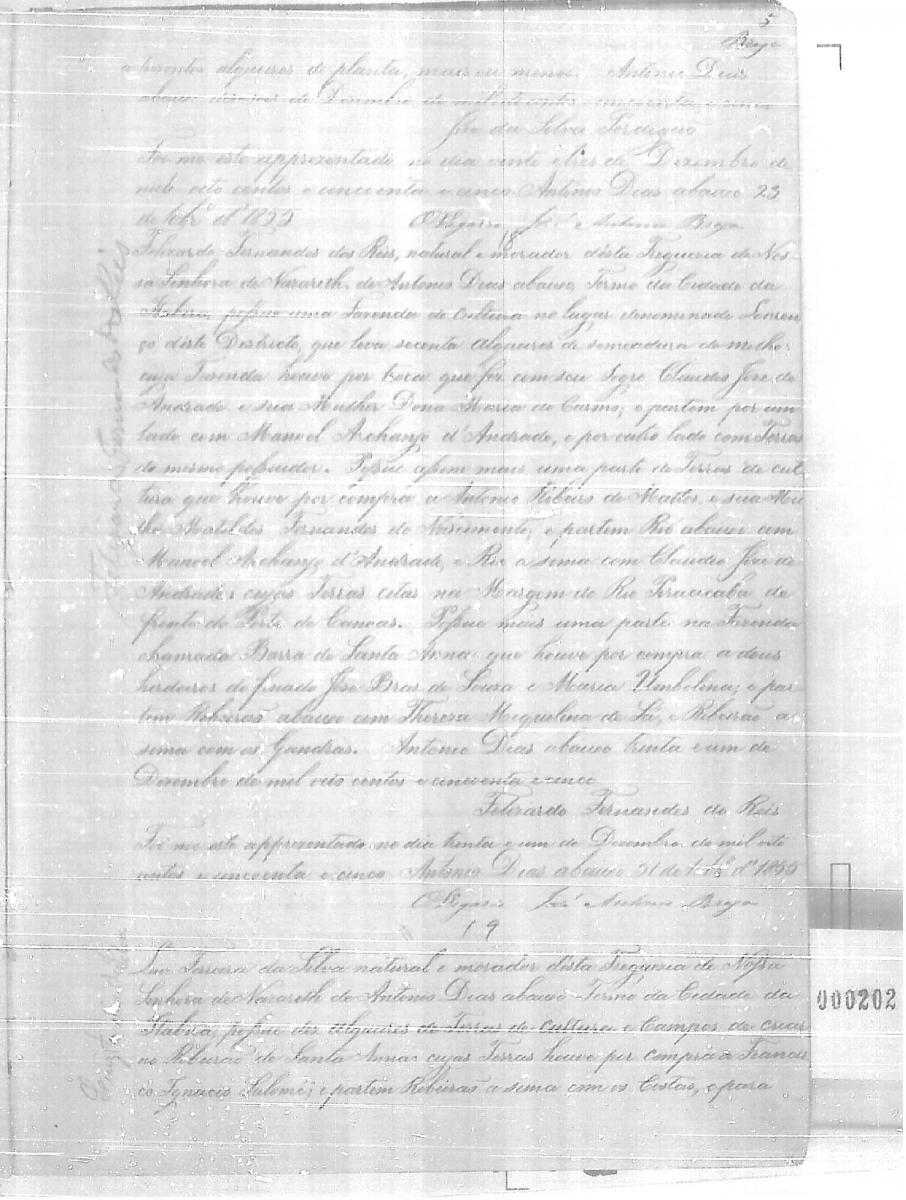 5
Braga
alqueires de planta, mais ou menos. Antonio Dias
abaixo de Dezembro de mil oito centos cincoenta e cinco
José da Silva Perdigão
Foi me este apprezentado no dia vinte e tres de Dezembro de
mil oito centos e cincoenta e cinco. Antonio Dias abaixo 23
de 1855 O Vigario José Antonio Braga
18
Felizardo Fernandes dos Reis, natural e morador dista Freguezia de Nos-
sa Senhora de Nazareth de Antonio Dias abaixo, Termo da Cidade da
Itabira, possue uma Fazenda de Cultura no lugar denominado Louren-
ço diste Districto, que leva secenta Alqueires de semeadura de milho:
cuja Fazenda houve por troca que fez com seu Sogro Claudio José de
Andrade e sua Mulher Dona Maria do Carmo; e partem por um
lado com Manoel Archanjo d'Andrade, e por outro lado com Terras
do mesmo possuidor. Possue assim mais uma parte de Terras de cul-
tura que houve por compra a Antonio Ribeiro de Mattos, e sua Mu-
lher Fernandes do Nascimento, e partem Rio abaixo com
Manoel Archanjo d'Andrade, e Rio a sima com Claudio José de
Andrade: cujas Terras citas na Margem do Rio Piracicaba de
fronte do Porto de Canoas. Possue mais uma parte na Fazenda
chamada Barra de Santa Anna que houve por compra a dous
herdeiros do finado José Bras de Souza e Maria Umbolina; e par-
tem Ribeirão abaixo com Thereza Miquelina de Sá, e Ribeirão a
sima com os Gandras. Antonio Dias abaixo trinta e um de
Dezembro de mil oito centos e cincoenta e cinco
Felizardo Fernandes do Reis
Foi me este apprezentado no dia trinta e um de Dezembro de mil oito
centos e cincoenta e cinco. Antonio Dias abaixo 31 de d'1855
O Vigario José Antonio Braga
19
Ferreira da Silva natural e morador dista Freguezia de Nossa
Senhora de Nazareth de Antonio Dias abaixo Termo da Cidade da
Itabira, possue des alqueires de Terras de Cultura e Campos de criar
no Ribeirão de Santa Anna: cujas Terras houve por compra a Francis-
co Ignacio Salomé; e partem Ribeirão a sima com os Costas, e para
000202